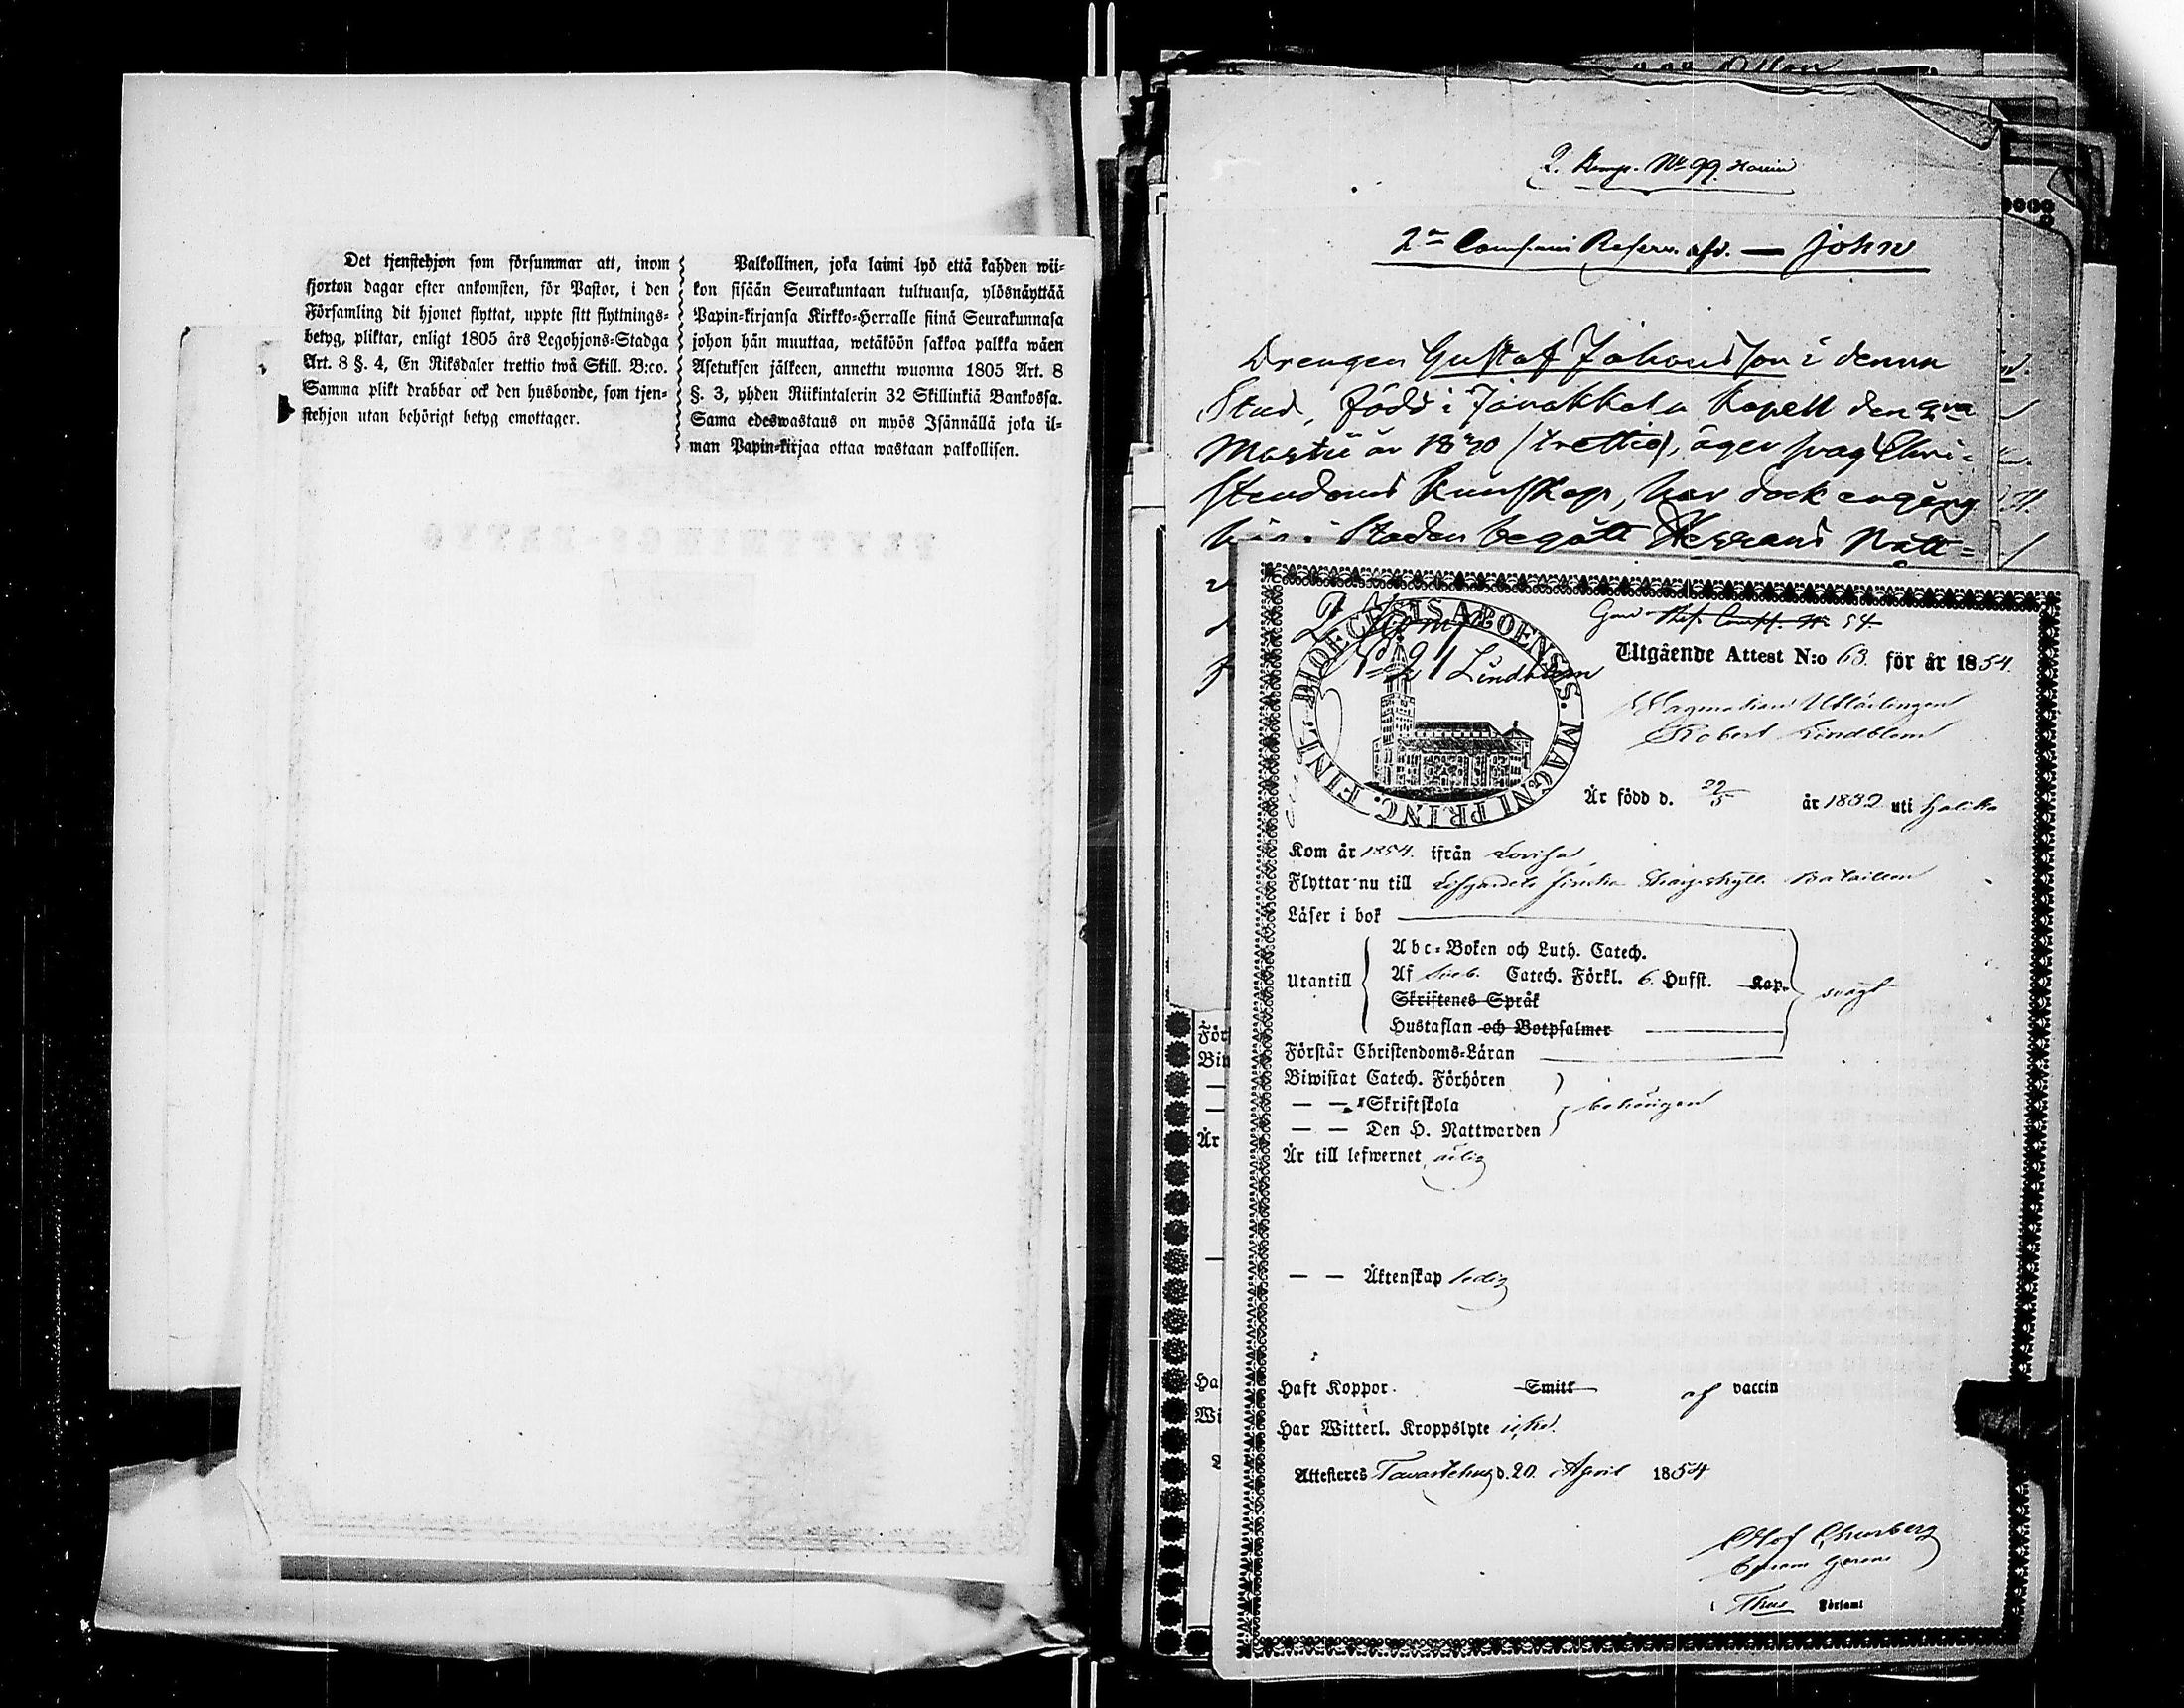 Det tjenstehjon som försummar att, inom
fjorton dagar efter ankomsten, för Pastor, i den
Församling dit hjonet flyttat, uppte sitt flyttnings-
betyg, pliktar, enligt 1805 års Legohjons-Stadga
Art. 8 §. 4, En Riksdaler trettio twå Skill. B:co.
Samma plikt drabbar ock den husbonde, som tjen-
stehjon utan behörigt betyg emottager.
Palkollinen, joka laimi lyö että kahden wii-
kon sisään Seurakuntaan tultuansa, ylösnäyttää
Papin-kirjansa Kirkko-Herralle siinä Seurakunnasa
johon hän muuttaa, wetäköön sakkoa palkka wäen
Asetuksen jälkeen, annettu wuonna 1805 Art. 8
§. 3, yhden Riikintalerin 32 Skillinkiä Bankossa.
Sama edeswastaus on myös Isännällä joka il-
man Papin-kirjaa ottaa wastaan palkollisen.
2. Komp. No 99
2a Compani Reserv. afd. — John
Drengen Gustaf Johansson i denna
Stad, född i Janakkala Kapell den
Martii år 1830 (trettio), äger svag Chri-
stendoms kunskap, har dock engång
Staden begått Herrans Natt-
2 Komp
No 91 Lindblom
DIOECESIS ABOENSIS. MAGNI PRINC. FINL.
54.
Utgående Attest N:o 63. för år 1854.
Robert Lindblom
Är född d. 22/5 år 1832 uti Halikko
Kom år 1854. ifrån Lovisa
Flyttar nu till Lifgardets finska Skarpskytte Bataillon
Läser i bok
Utantill
Abc-Boken och Luth. Catech.
Af Sveb. Catech. Förkl. 6. Hufst. Kap.
Skriftenes Språk
Hustaflan och Botpsalmer
svagt
Förstår Christendoms-Läran
Biwistat Catech. Förhören
— — Skriftskola
— — Den H. Nattwarden
behörigen
Är till lefwernet ärlig
— — Äktenskap ledig
Haft Koppor. Smitt af vaccin
Har Witterl. Kroppslyte icke.
Attesteres Tavastehus d. 20. April 1854
Olof
Församl
För
Är
Ha
Wi